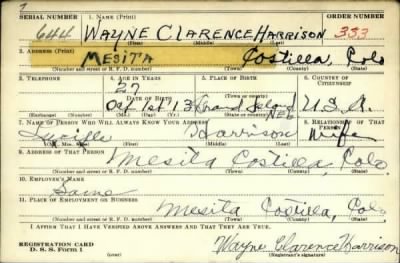 7
SERIAL NUMBER 1. NAME (Print) ORDER NUMBER
644 WAYNE CLARENCE HARRISON 333
(First) (Middle) (Last)
2. ADDRESS (Print)
MESITA Costilla, Colo
(Number and street or R. F. D. number) (Town) (County) (State)
3. TELEPHONE 4. AGE IN YEARS 5. PLACE OF BIRTH 6. COUNTRY OF CITIZENSHIP
27
DATE OF BIRTH Grand Island
Oct 1st 13 NEB U.S.A.
(Exchange) (Number) (Mo.) (Day) (Yr.) (State or country)
7. NAME OF PERSON WHO WILL ALWAYS KNOW YOUR ADDRESS 8. RELATIONSHIP OF THAT PERSON
Lucille Harrison Wife
(Mr., Mrs., Miss) (First) (Middle) (Last)
9. ADDRESS OF THAT PERSON
Mesita Costilla, Colo.
(Number and street or R. F. D. number) (Town) (County) (State)
10. EMPLOYER'S NAME
Same
11. PLACE OF EMPLOYMENT OR BUSINESS
Mesita Costilla, Colo
(Number and street or R. F. D. number) (Town) (County) (State)
I AFFIRM THAT I HAVE VERIFIED ABOVE ANSWERS AND THAT THEY ARE TRUE.
REGISTRATION CARD
D. S. S. Form 1 Wayne Clarence Harrison
(Registrant's signature)